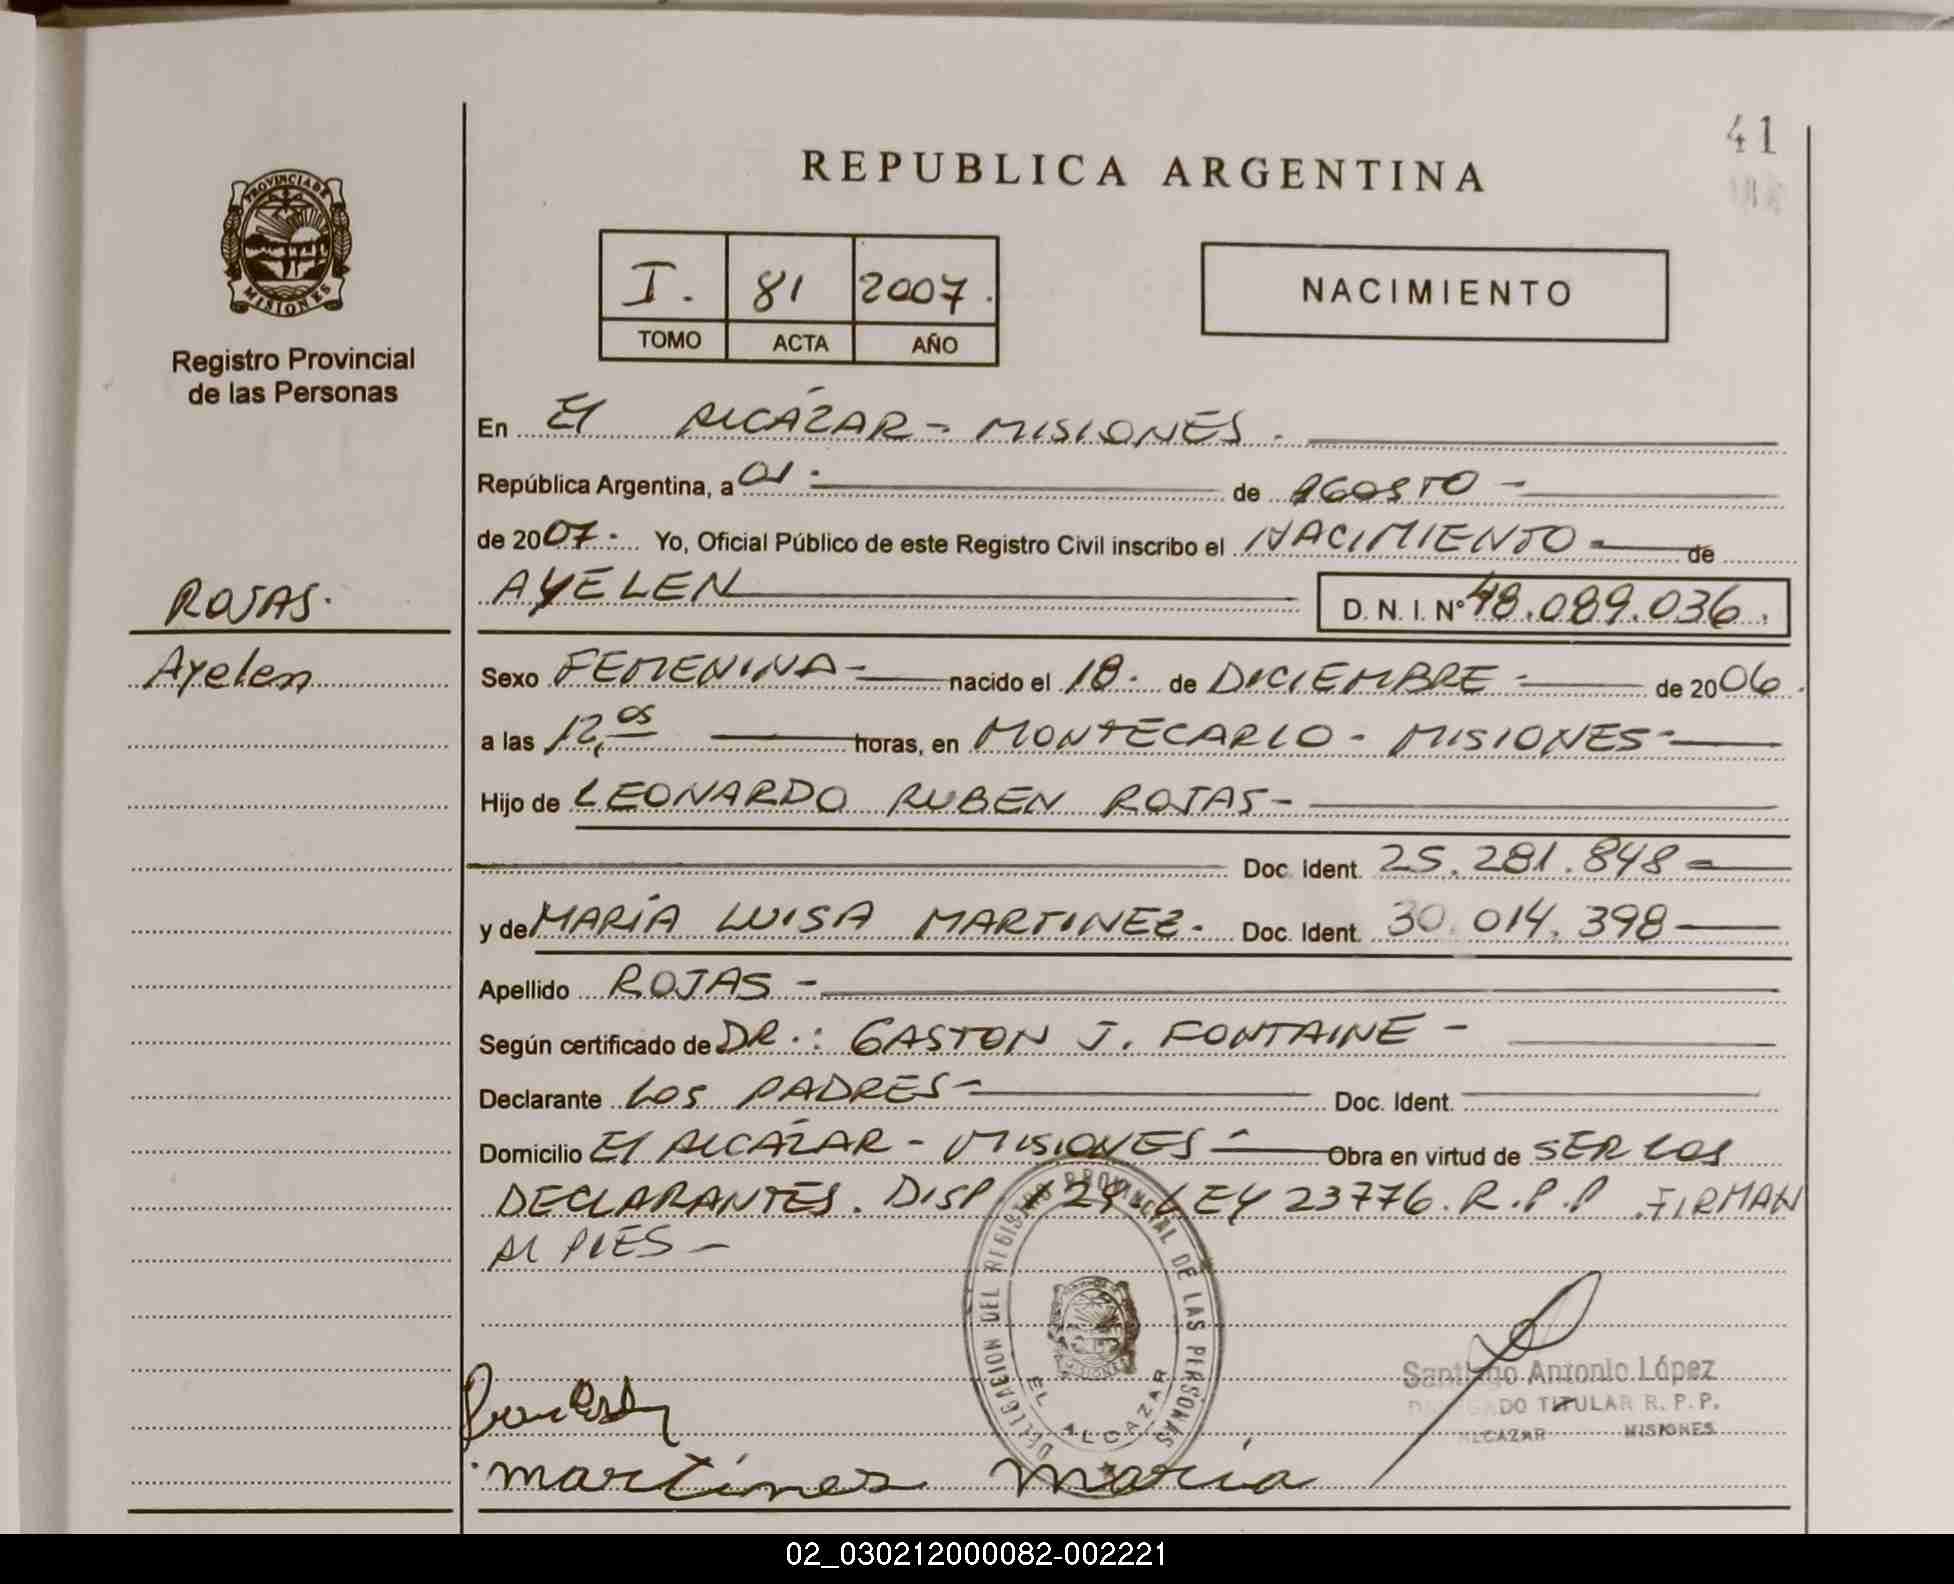 41
REPUBLICA ARGENTINA
PROVINCIA DE
MISIONES
Registro Provincial
de las Personas
I. 81 2007.
TOMO ACTA AÑO
NACIMIENTO
En El ALCÁZAR - MISIONES.
República Argentina, a 01. de AGOSTO -
de 2007. Yo, Oficial Público de este Registro Civil inscribo el NACIMIENTO - de
ROJAS.
AYELEN D. N. I. N° 48.089.036.
Ayelen
Sexo FEMENINA - nacido el 18. de DICIEMBRE - de 2006.
a las 12,05 horas, en MONTECARLO - MISIONES -
Hijo de LEONARDO RUBEN ROJAS -
Doc. Ident. 25.281.848 -
y de MARÍA LUISA MARTINEZ. Doc. Ident. 30.014.398
Apellido ROJAS -
Según certificado de DR.: GASTON J. FONTAINE -
Declarante LOS PADRES - Doc. Ident.
Domicilio El ALCÁZAR - MISIONES - Obra en virtud de SER LOS
DECLARANTES. DISP 124 LEY 23776. R.P.P. FIRMAN
Al PIES -
DELEGACION DEL REGISTRO PROVINCIAL DE LAS PERSONAS
MISIONES
EL ALCAZAR
Santiago Antonio López
DELEGADO TITULAR R. P. P.
ALCAZAR MISIONES
martines maria
02_030212000082-002221